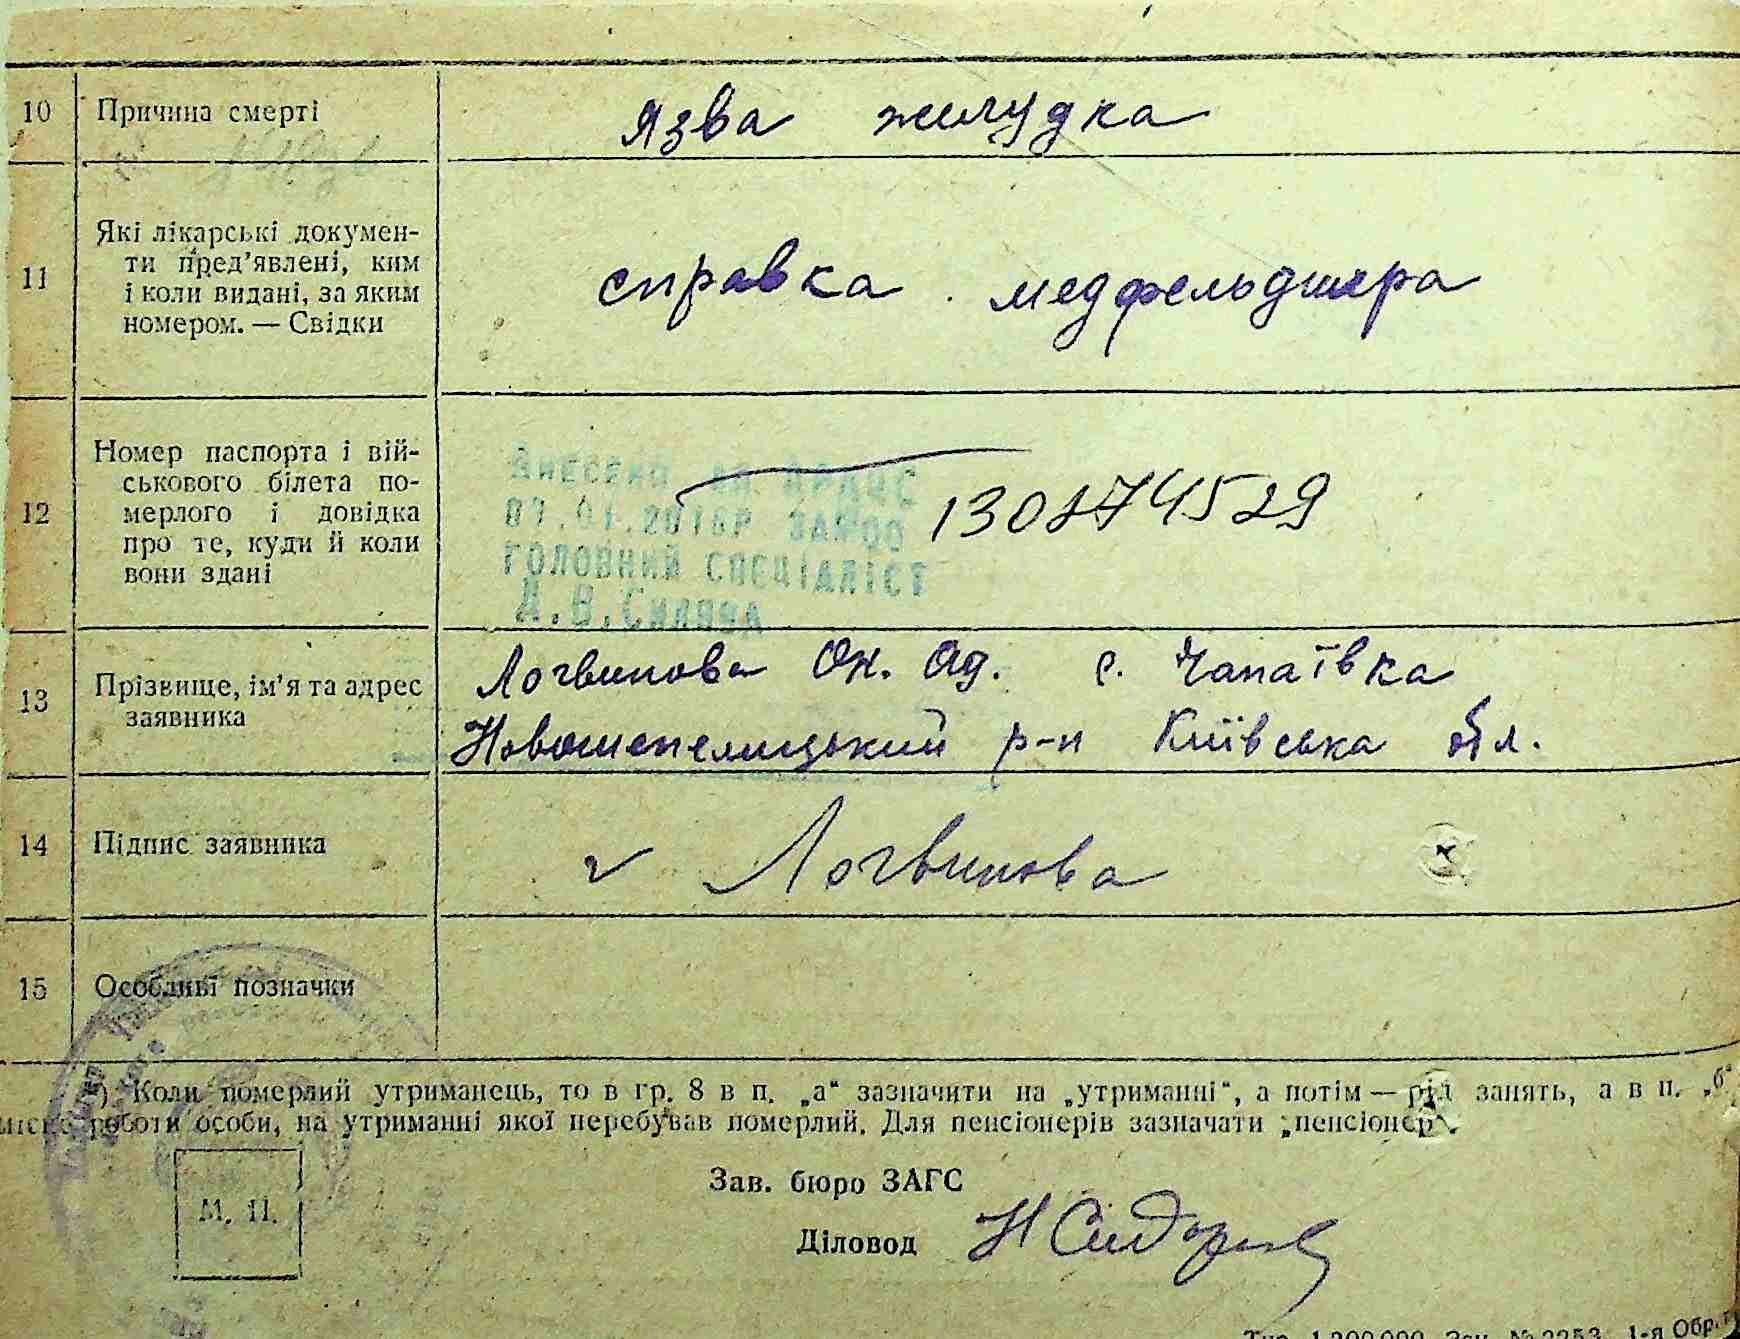 10 Причина смерті
язва желудка
11 Які лікарські докумен-
ти пред'явлені, ким
і коли видані, за яким
номером. — Свідки
справка медфельдшера
12 Номер паспорта і вій-
ськового білета по-
мерлого і довідка
про те, куди й коли
вони здані
ГОЛОВНИЙ СПЕЦІАЛІСТ
13 Прізвище, ім'я та адрес
заявника
Логвинова Ок. Ад. с. Чапаївка
Новошепелицький р-н Київська обл.
14 Підпис заявника
Логвинова
15 Особливі позначки
*) Коли померлий утриманець, то в гр. 8 в п. „а“ зазначити на „утриманні“, а потім — рід занять, а в п. „б“
місце роботи особи, на утриманні якої перебував померлий. Для пенсіонерів зазначати „пенсіонер“.
М. П.
Зав. бюро ЗАГС
Діловод
Тир. 1.200.000 Зак. № 2253 1-я Обр.